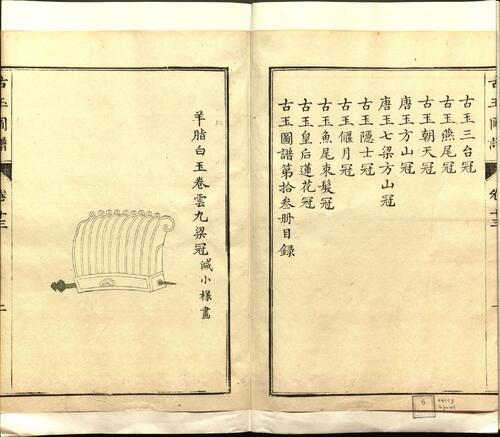 古玉三台冠
古玉燕尾冠
古玉朝天冠
唐玉方山冠
唐玉七梁方山冠
古玉隠士冠
古玉偃月冠
古玉魚尾束髮冠
古玉皇后蓮花冠
古玉圖譜第拾叁册目録
羊脂白玉卷雲九梁冠減小樣畫
古玉圖譜
卷十三
一
6